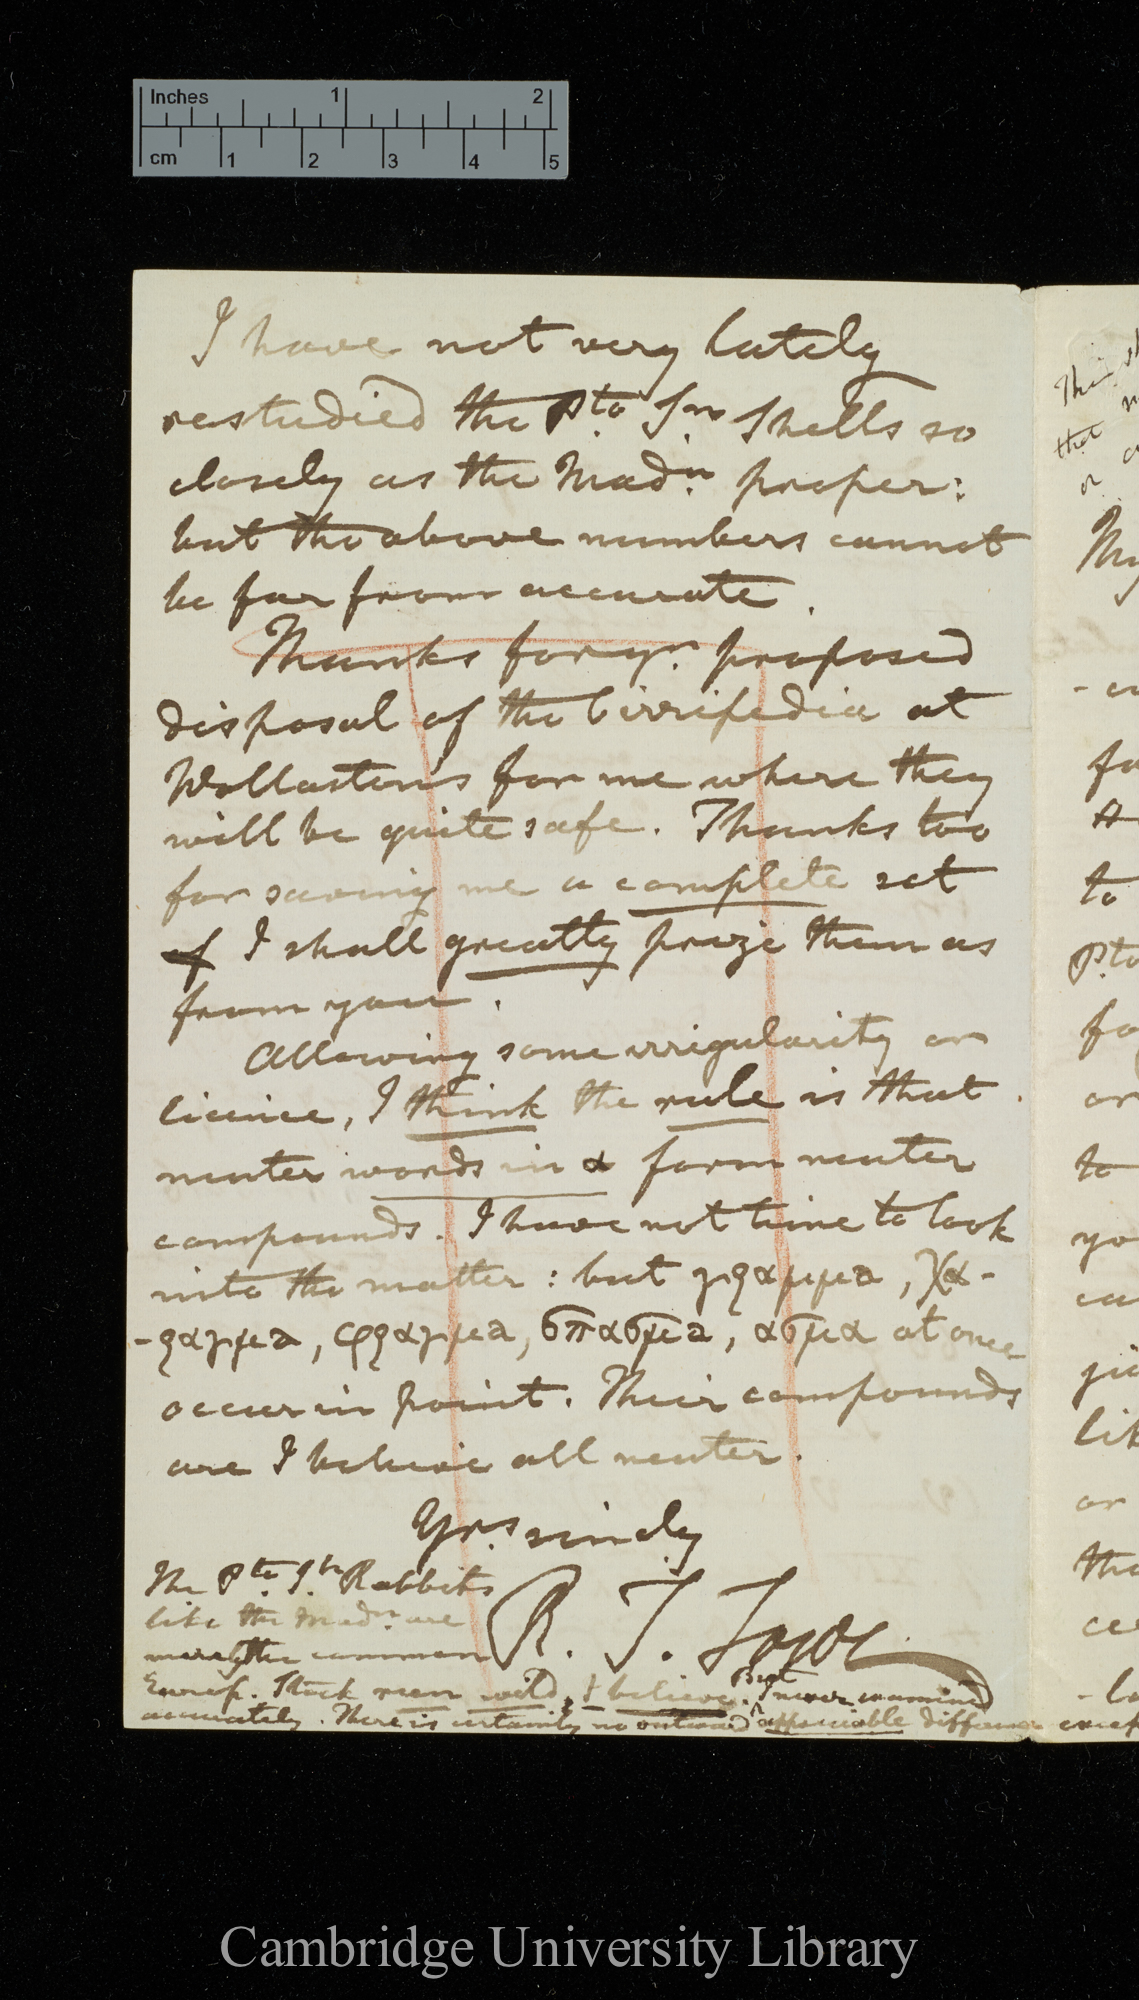 Inches 1 2
cm 1 2 3 4 5
I have not very lately
restudied the Pto Sto Shells so
closely as the Madn. proper:
but the above numbers cannot
be far from accurate.
Thanks for yr. proposed
disposal of the Cirripedia at
Wollaston's for me where they
will be quite safe. Thanks too
for saving me a complete set
of I shall greatly prize them as
from you.
Allowing some irregularity or
licence, I think the rule is that
neuter words in α form neuter
compounds. I have not time to look
into the matter: but γραμμα, χα-
-ραγμα, φραγμα, σπασμα, ασμα at once
occur in point. Their compounds
are I believe all neuter.
Yrs. sincly
R. T. Lowe
The Pto. Sto Rabbits
like the Madn. are
merely the common
Europ. Stock run wild, I believe. But I never examined
accurately. There is certainly no outward appreciable difference
My
to
Pto
fo
or
to
yo
ca
or
the